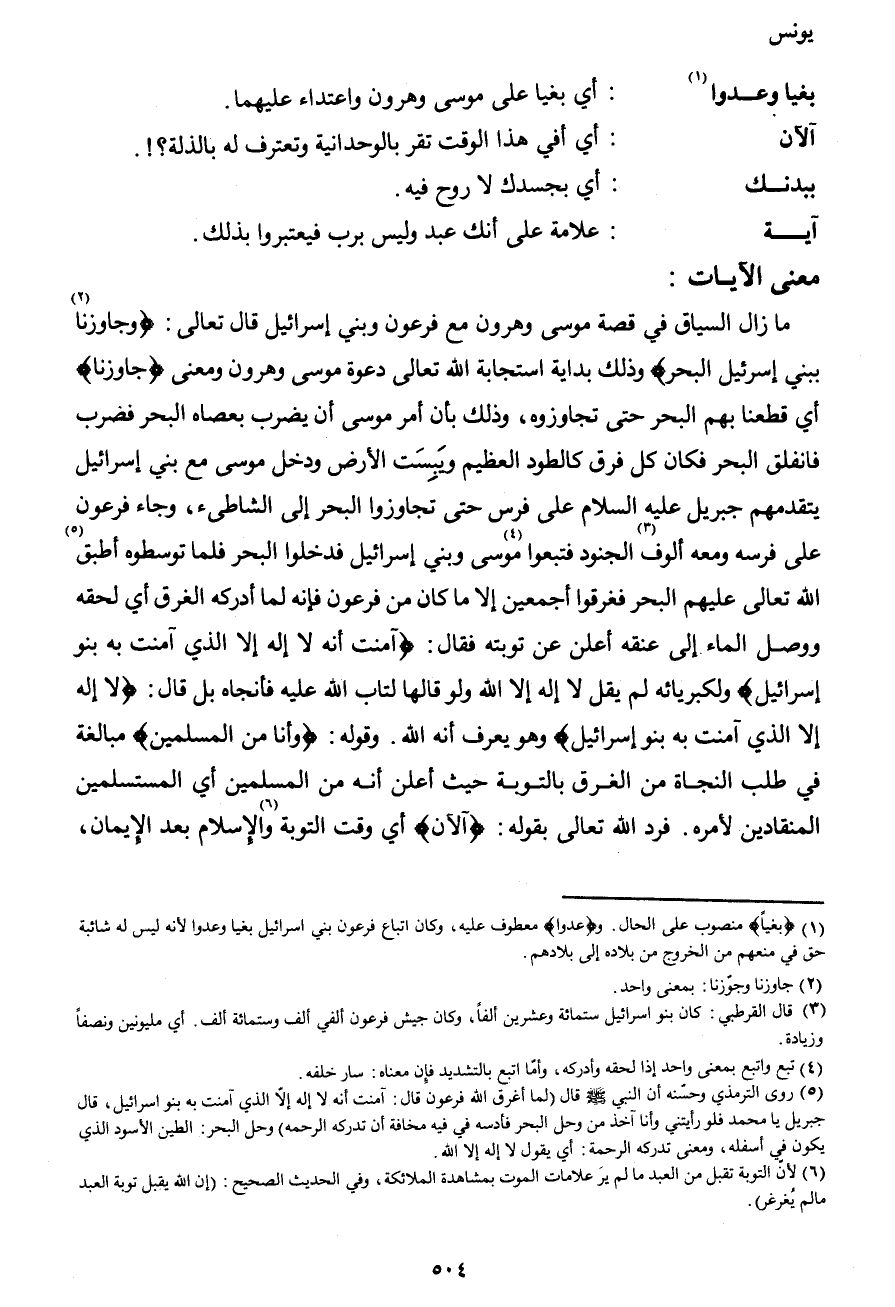 يونس
بغيا وعـــدوا(١) : أي بغيا على موسى وهرون واعتداء عليهما.
آلآن : أي أفي هذا الوقت تقر بالوحدانية وتعترف له بالذلة؟!.
ببدنـــك : أي بجسدك لا روح فيه.
آيـــــة : علامة على أنك عبد وليس برب فيعتبروا بذلك.
معنى الآيـات :
ما زال السياق في قصة موسى وهرون مع فرعون وبني إسرائيل قال تعالى: ﴿وجاوزنا(٢)
ببني إسرئيل البحر﴾ وذلك بداية استجابة الله تعالى دعوة موسى وهرون ومعنى ﴿جاوزنا﴾
أي قطعنا بهم البحر حتى تجاوزوه، وذلك بأن أمر موسى أن يضرب بعصاه البحر فضرب
فانفلق البحر فكان كل فرق كالطود العظيم ويَبِسَت الأرض ودخل موسى مع بني إسرائيل
يتقدمهم جبريل عليه السلام على فرس حتى تجاوزوا البحر إلى الشاطىء، وجاء فرعون
على فرسه ومعه ألوف(٣) الجنود فتبعوا(٤) موسى وبني إسرائيل فدخلوا البحر فلما توسطوه أطبق(٥)
الله تعالى عليهم البحر فغرقوا أجمعين إلا ما كان من فرعون فإنه لما أدركه الغرق أي لحقه
ووصل الماء إلى عنقه أعلن عن توبته فقال: ﴿آمنت أنه لا إله إلا الذي آمنت به بنو
إسرائيل﴾ ولكبريائه لم يقل لا إله إلا الله ولو قالها لتاب الله عليه فأنجاه بل قال: ﴿لا إله
إلا الذي آمنت به بنو إسرائيل﴾ وهو يعرف أنه الله. وقوله: ﴿وأنا من المسلمين﴾ مبالغة
في طلب النجاة من الغرق بالتوبة حيث أعلن أنه من المسلمين أي المستسلمين
المنقادين لأمره. فرد الله تعالى بقوله: ﴿آلآن﴾ أي وقت التوبة(٦) والإسلام بعد الإيمان،
(١) ﴿بغياً﴾ منصوب على الحال. و﴿عدوا﴾ معطوف عليه، وكان اتباع فرعون بني اسرائيل بغيا وعدوا لأنه ليس له شائبة
حق في منعهم من الخروج من بلاده إلى بلادهم.
(٢) جاوزنا وجوّزنا: بمعنى واحد.
(٣) قال القرطبي: كان بنو اسرائيل ستمائة وعشرين ألفاً، وكان جيش فرعون ألفي ألف وستمائة ألف. أي مليونين ونصفاً
وزيادة.
(٤) تبع واتبع بمعنى واحد إذا لحقه وأدركه، وأمّا اتبع بالتشديد فإن معناه: سار خلفه.
(٥) روى الترمذي وحسّنه أن النبي ﷺ قال (لما أغرق الله فرعون قال: آمنت أنه لا إله إلّا الذي آمنت به بنو اسرائيل، قال
جبريل يا محمد فلو رأيتني وأنا آخذ من وحل البحر فأدسه في فيه مخافة أن تدركه الرحمه) وحل البحر: الطين الأسود الذي
يكون في أسفله، ومعنى تدركه الرحمة: أي يقول لا إله إلا الله.
(٦) لأنّ التوبة تقبل من العبد ما لم يرَ علامات الموت بمشاهدة الملائكة، وفي الحديث الصحيح: (إن الله يقبل توبة العبد
مالم يُغرغر).
٥٠٤